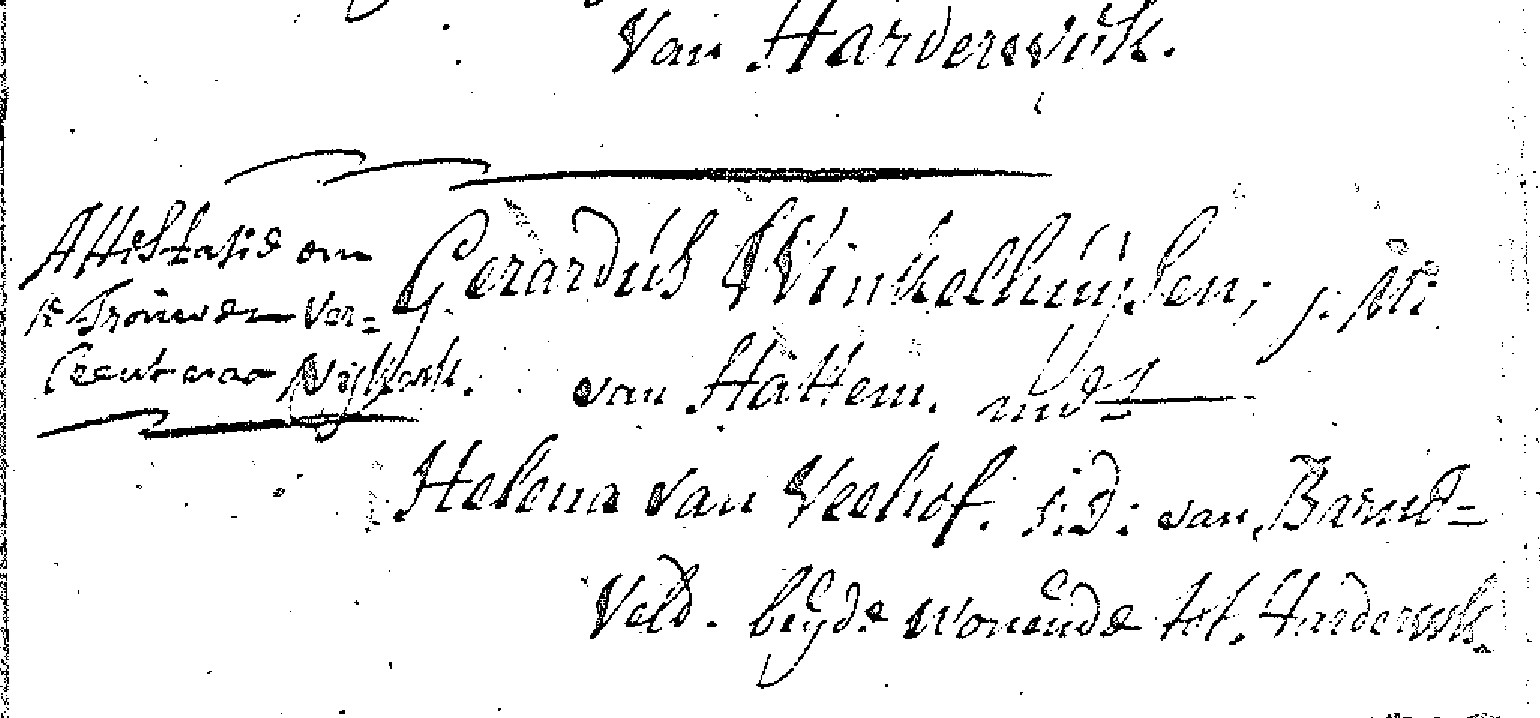 van Harderwijk.
Attestatie om
te Trouwen ver=
leent naar Nijkerk.
Gerardus Winkelhuijsen, j: M:
van Hattem. midt
Helena van Veehof. j: D: van Barne=
Veld. beijde wonende tot Harderwyk.